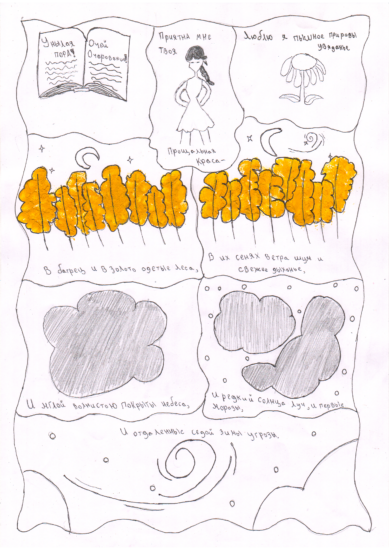 Унылая пора!
Очей Очарованье!
Приятна мне
Твоя
Прощальная
краса-
Люблю я пышное природы
увяданье
В багрец и в золото одетые леса,
В их сенях ветра шум и
свежее дыханье,
И мглой волнистою покрыты небеса,
И редкий солнца луч, и первые
морозы,
И отдаленные седой зимы угрозы.